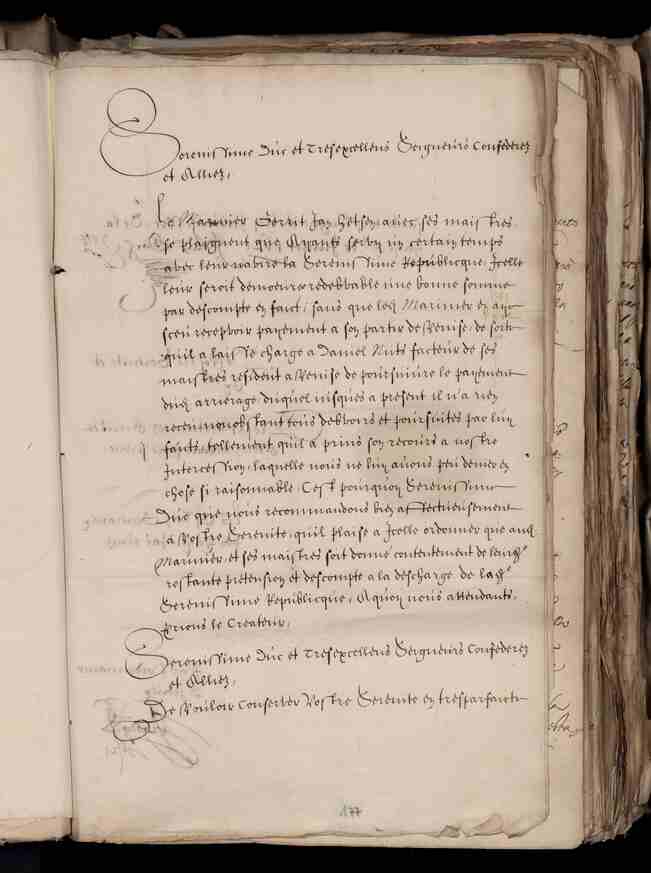 Serenissime Duc et Tresexcellens Seigneurs Confederez
et Alliez,
Le Marinier Gerrit Jan, avecq ses maistres
se plaignent que Ayants servy un certain temps
avec leur navire la Serenissime Republicque, Icelle
leur seroit demeuree redebvable une bonne somme
par descompte en faict, sans que led Marinier en ayt
sceu recepvoir payement a son partir de Venise, de sorte
quil a laisse charge a Daniel Nuts facteur de ses
maistres resident a Venise de poursuivre le payement
dud arrierage duquel jusques a present il n'a rien
receu nonobstant tous debvoirs et poursuites par luy
faits, tellement quil a prins son recours a nostre
Intercession, laquelle nous ne luy avons peu denier en
chose si raisonnable, C'est pourquoy Serenissime
Duc que nous recommandons bien affectueusement
a Vostre Serenite, quil plaise a Icelle ordonner que aud
Marinier, et ses maistres soit donne contentement de leur
restante pretension et descompte a la descharge de lad
Serenissime Republicque, A quoy nous attendants,
Prions le Createur,
Serenissime Duc et Tresexcellens Seigneurs Confederez
et Alliez,
De Vouloir Conserver Vostre Serenite en tresparfaicte
177